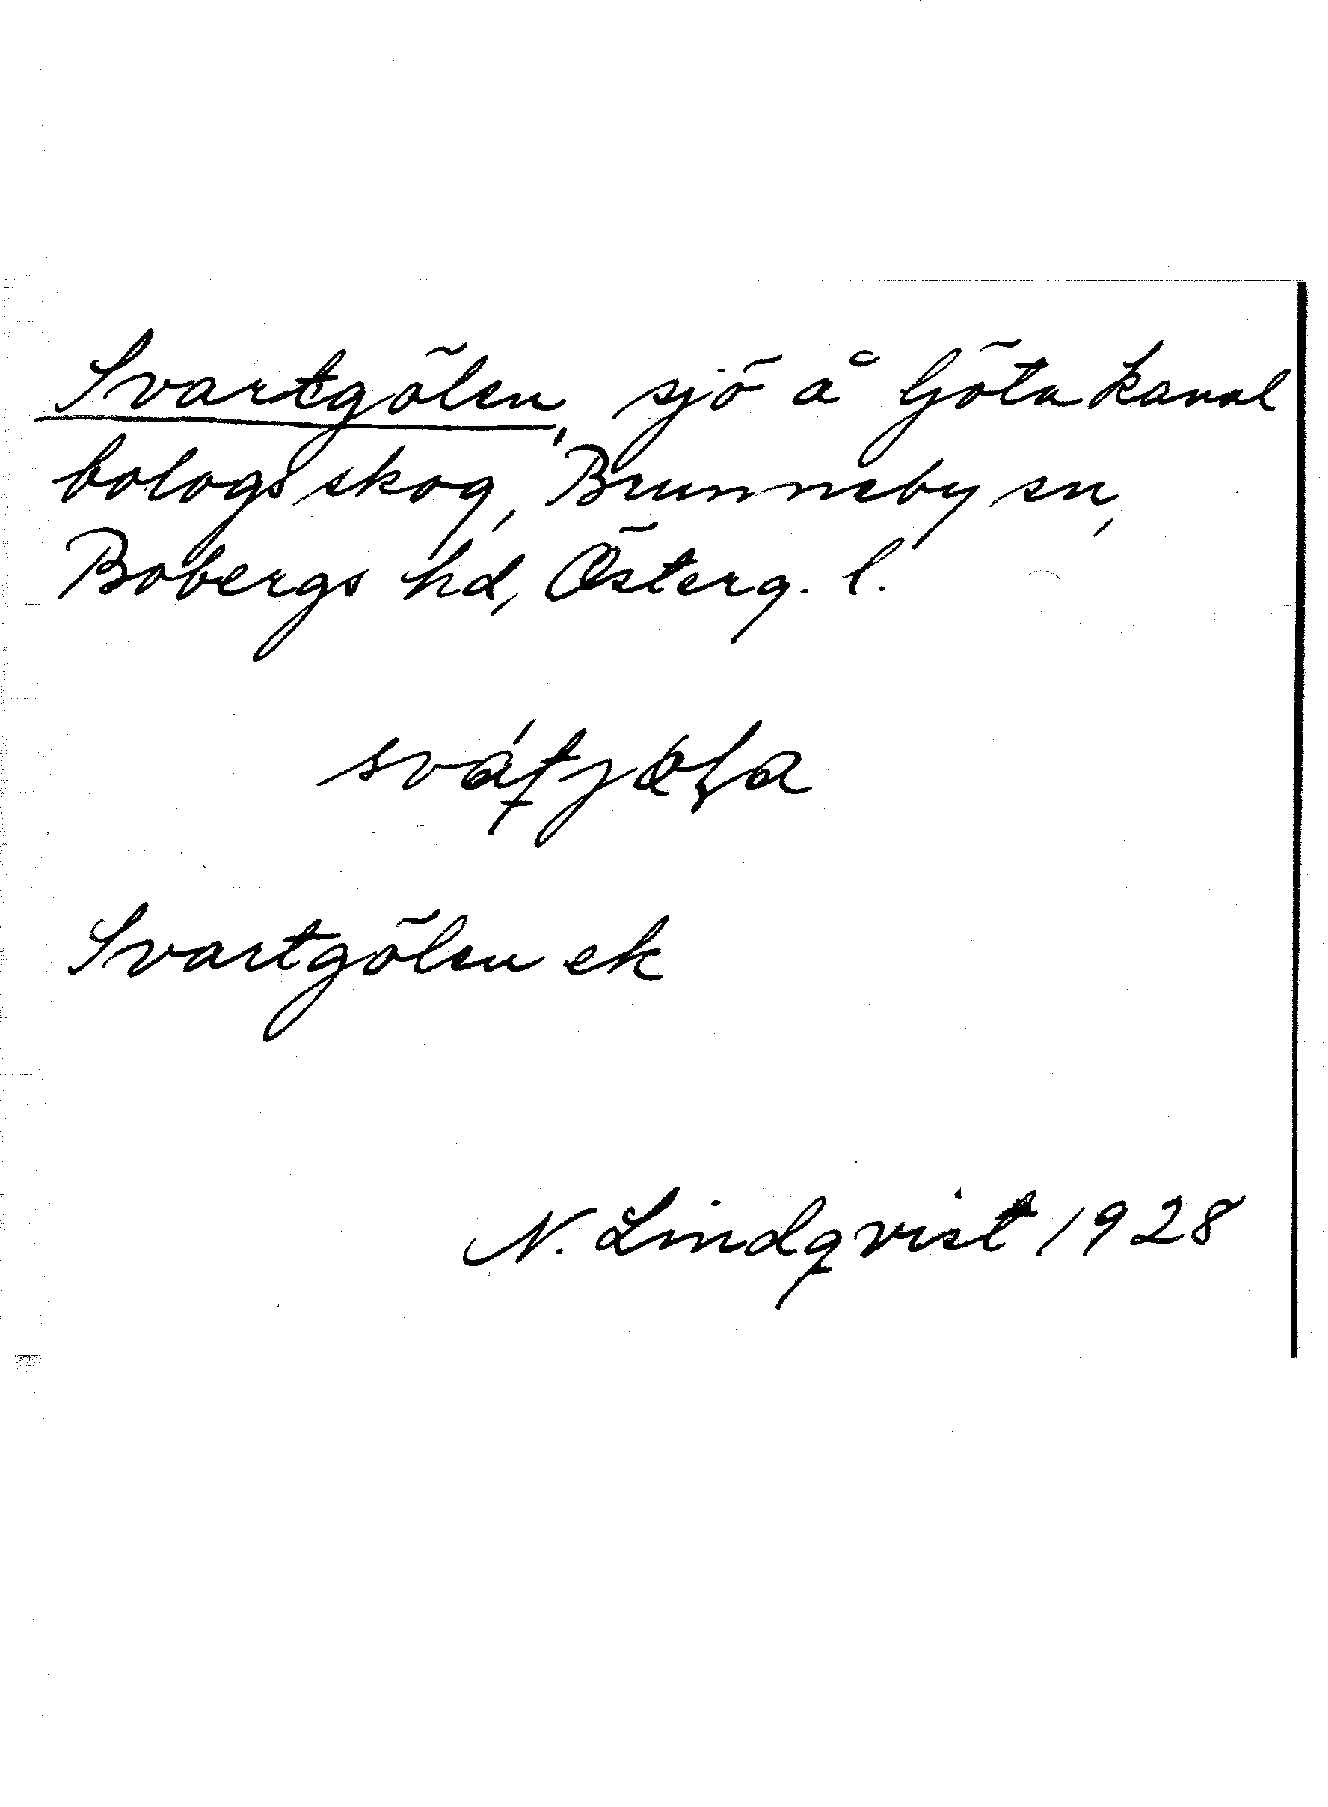 Svartgölen, sjö å Göta kanal
bologs skog, Brunneby sn,
Bobergs hd, Österg. l.
Svartgölen ek
N. Lindqvist 1928